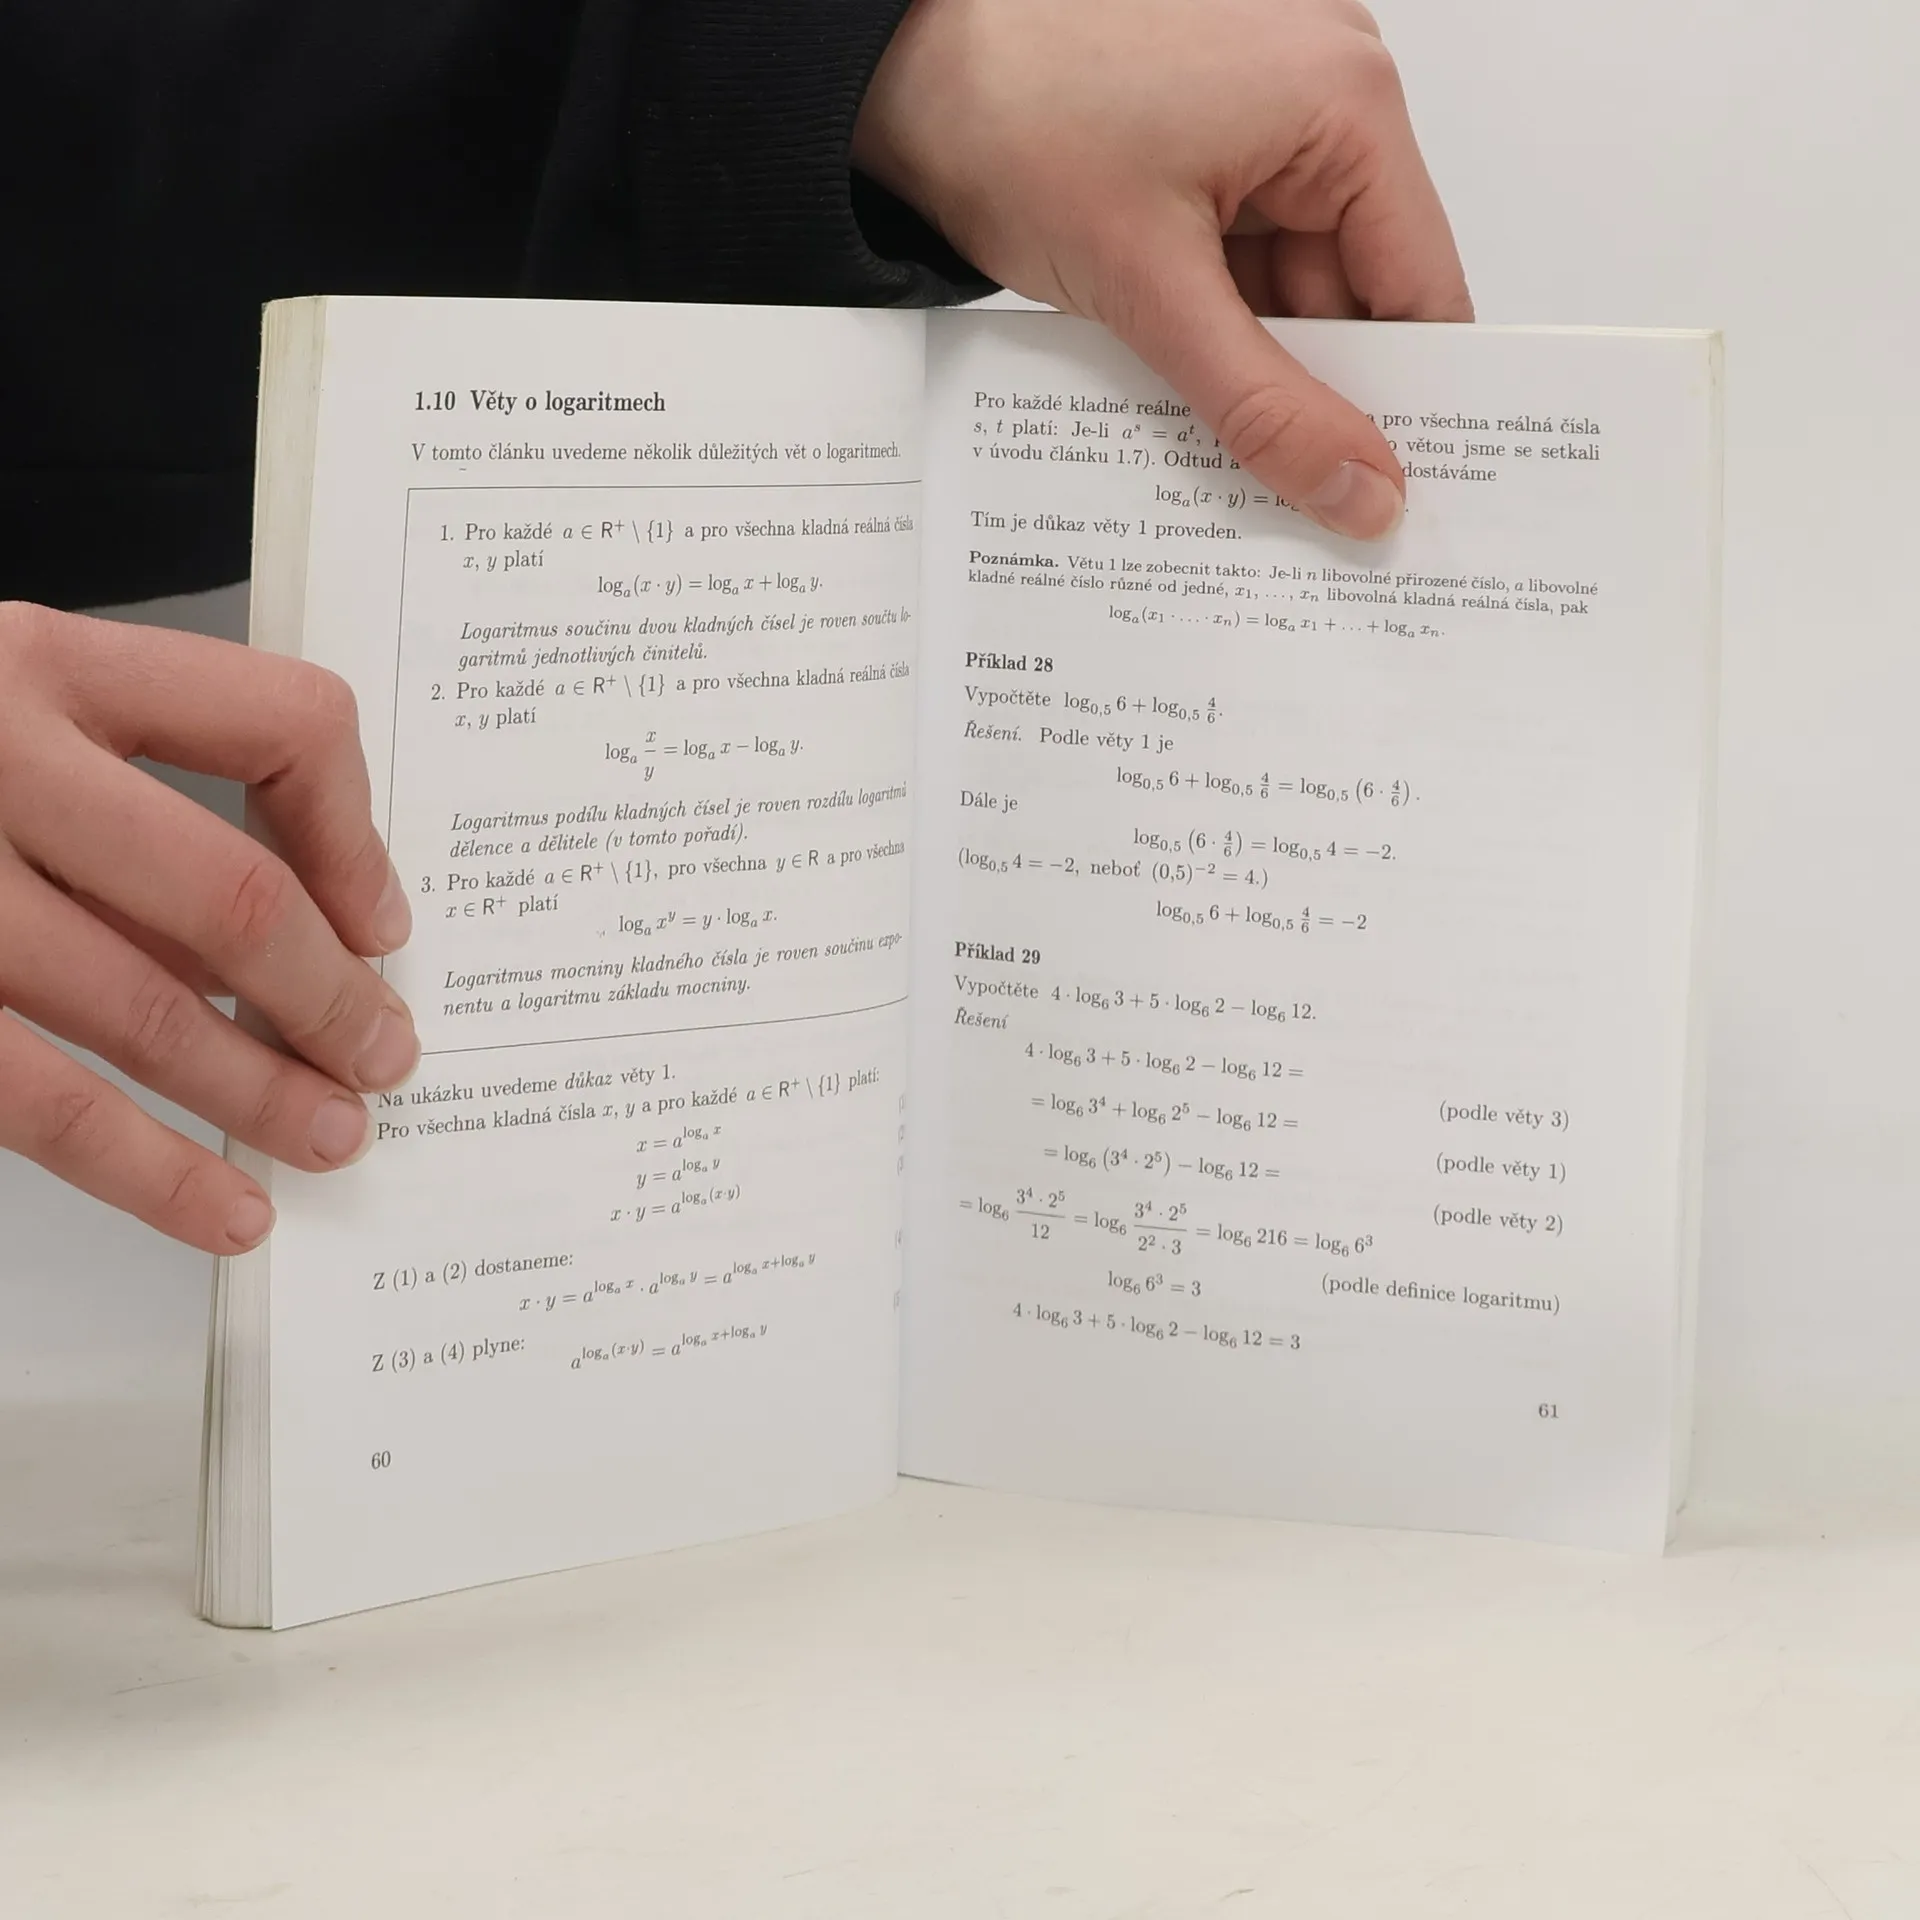 1.10 Věty o logaritmech
V tomto článku uvedeme několik důležitých vět o logaritmech.
1. Pro každé a ∈ R⁺ \ {1} a pro všechna kladná reálná čísla
x, y platí
logₐ(x · y) = logₐ x + logₐ y.
Logaritmus součinu dvou kladných čísel je roven součtu lo-
garitmů jednotlivých činitelů.
2. Pro každé a ∈ R⁺ \ {1} a pro všechna kladná reálná čísla
x, y platí
logₐ x/y = logₐ x − logₐ y.
Logaritmus podílu kladných čísel je roven rozdílu logaritmů
dělence a dělitele (v tomto pořadí).
3. Pro každé a ∈ R⁺ \ {1}, pro všechna y ∈ R a pro všechna
x ∈ R⁺ platí
logₐ x^y = y · logₐ x.
Logaritmus mocniny kladného čísla je roven součinu expo-
nentu a logaritmu základu mocniny.
Na ukázku uvedeme důkaz věty 1.
Pro všechna kladná čísla x, y a pro každé a ∈ R⁺ \ {1} platí:
x = a^(logₐ x)
y = a^(logₐ y)
x · y = a^(logₐ (x·y))
Z (1) a (2) dostaneme:
x · y = a^(logₐ x) · a^(logₐ y) = a^(logₐ x+logₐ y)
Z (3) a (4) plyne:
a^(logₐ (x·y)) = a^(logₐ x+logₐ y)
60
Pro každé kladné reálne pro všechna reálná čísla
s, t platí: Je-li aˢ = aᵗ, větou jsme se setkali
v úvodu článku 1.7). Odtud dostáváme
logₐ(x · y) =
Tím je důkaz věty 1 proveden.
Poznámka. Větu 1 lze zobecnit takto: Je-li n libovolné přirozené číslo, a libovolné
kladné reálné číslo různé od jedné, x₁, ..., xₙ libovolná kladná reálná čísla, pak
logₐ(x₁ · ... · xₙ) = logₐ x₁ + ... + logₐ xₙ.
Příklad 28
Vypočtěte log₀,₅ 6 + log₀,₅ 4/6.
Řešení. Podle věty 1 je
log₀,₅ 6 + log₀,₅ 4/6 = log₀,₅ (6 · 4/6).
Dále je
log₀,₅ (6 · 4/6) = log₀,₅ 4 = −2.
(log₀,₅ 4 = −2, neboť (0,5)⁻² = 4.)
log₀,₅ 6 + log₀,₅ 4/6 = −2
Příklad 29
Vypočtěte 4 · log₆ 3 + 5 · log₆ 2 − log₆ 12.
Řešení
4 · log₆ 3 + 5 · log₆ 2 − log₆ 12 =
= log₆ 3⁴ + log₆ 2⁵ − log₆ 12 = (podle věty 3)
= log₆ (3⁴ · 2⁵) − log₆ 12 = (podle věty 1)
= log₆ (3⁴ · 2⁵)/12 = log₆ (3⁴ · 2⁵)/(2² · 3) = log₆ 216 = log₆ 6³ (podle věty 2)
log₆ 6³ = 3 (podle definice logaritmu)
4 · log₆ 3 + 5 · log₆ 2 − log₆ 12 = 3
61